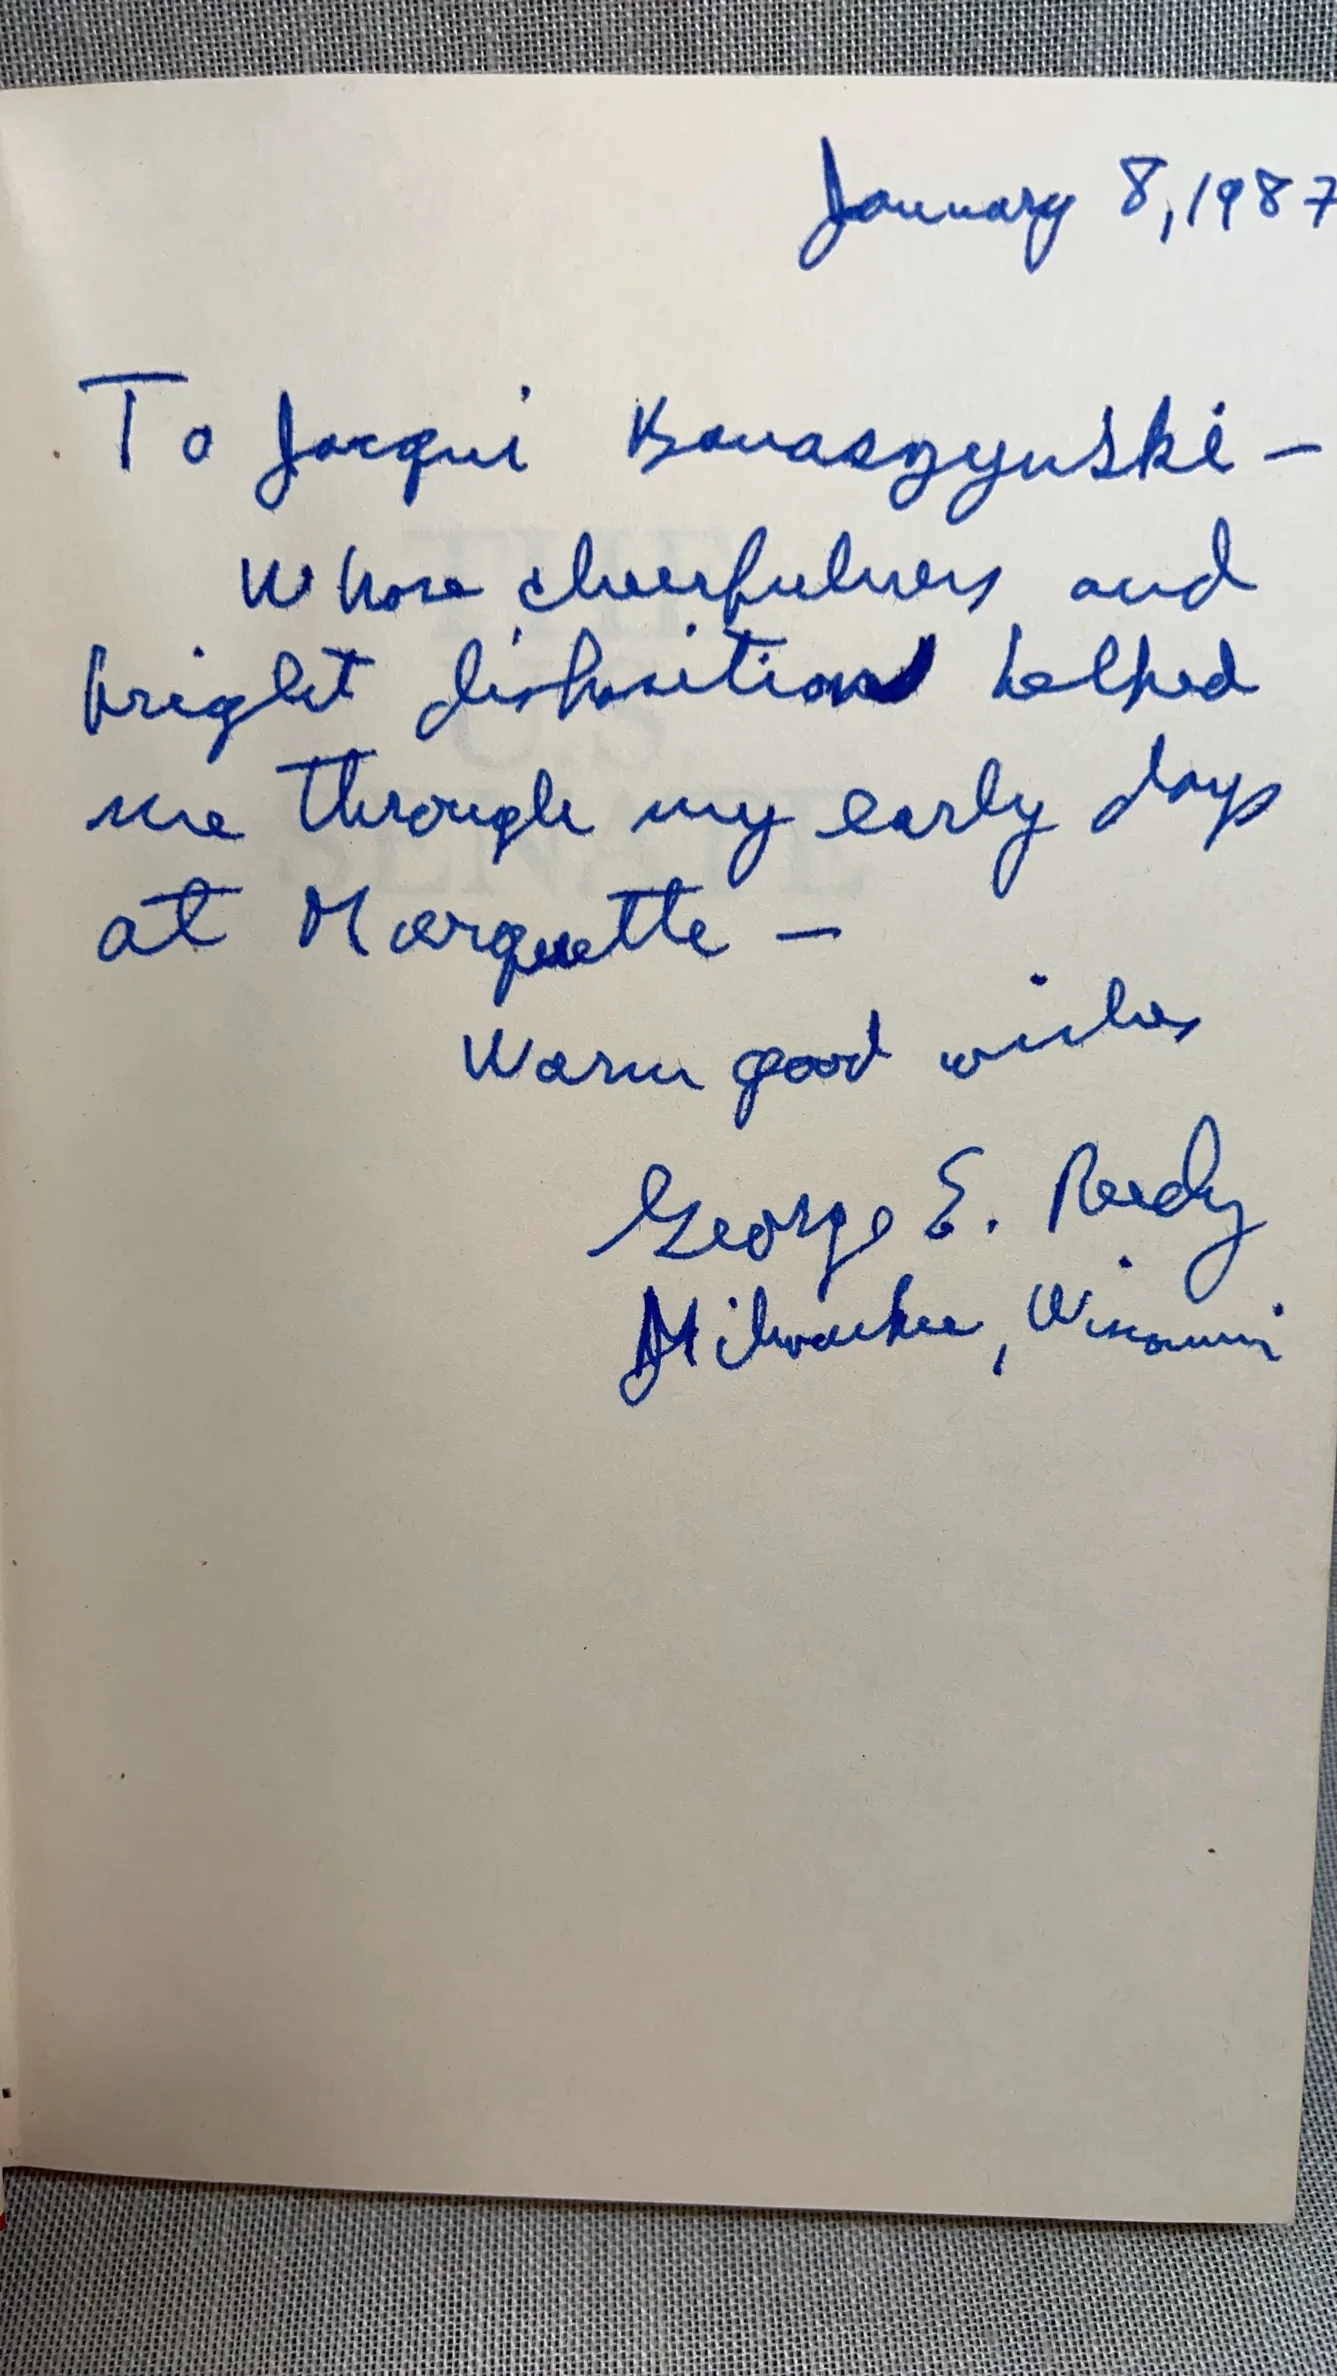 January 8, 1987
To Jacqui Banaszynski –
Whose cheerfulness and
bright disposition helped
me through my early days
at Marquette –
Warm good wishes
George E. Reedy
Milwaukee, Wisconsin
THE
U.S.
SENATE